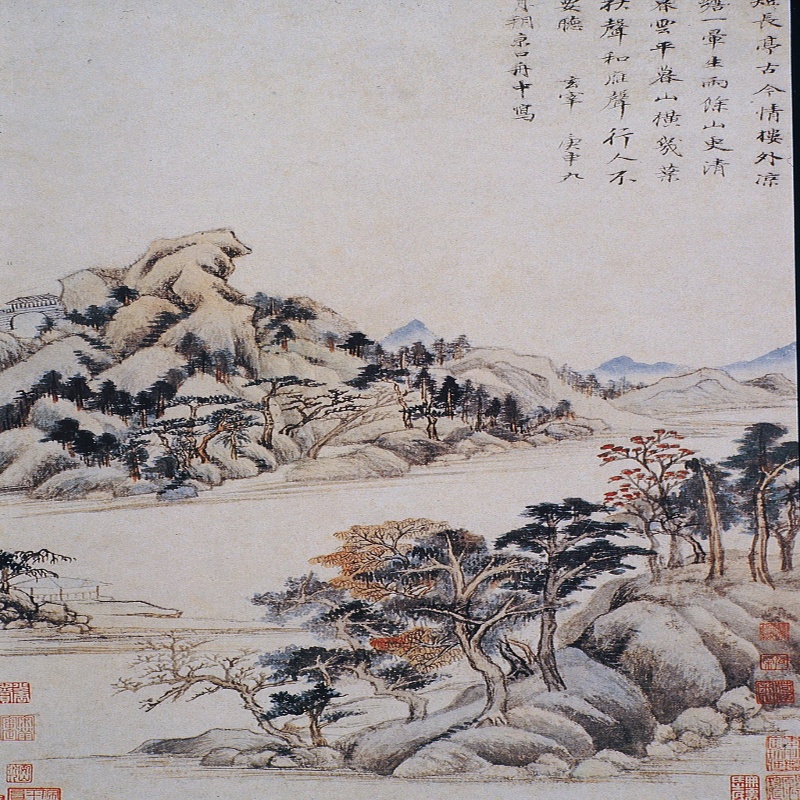 短長亭古今情樓外凉
蟾一暈生雨餘山更清
暮雲平暮山橫幾葉
秋聲和雁聲行人不
要聽 玄宰 庚申九
月朔京口舟中寫